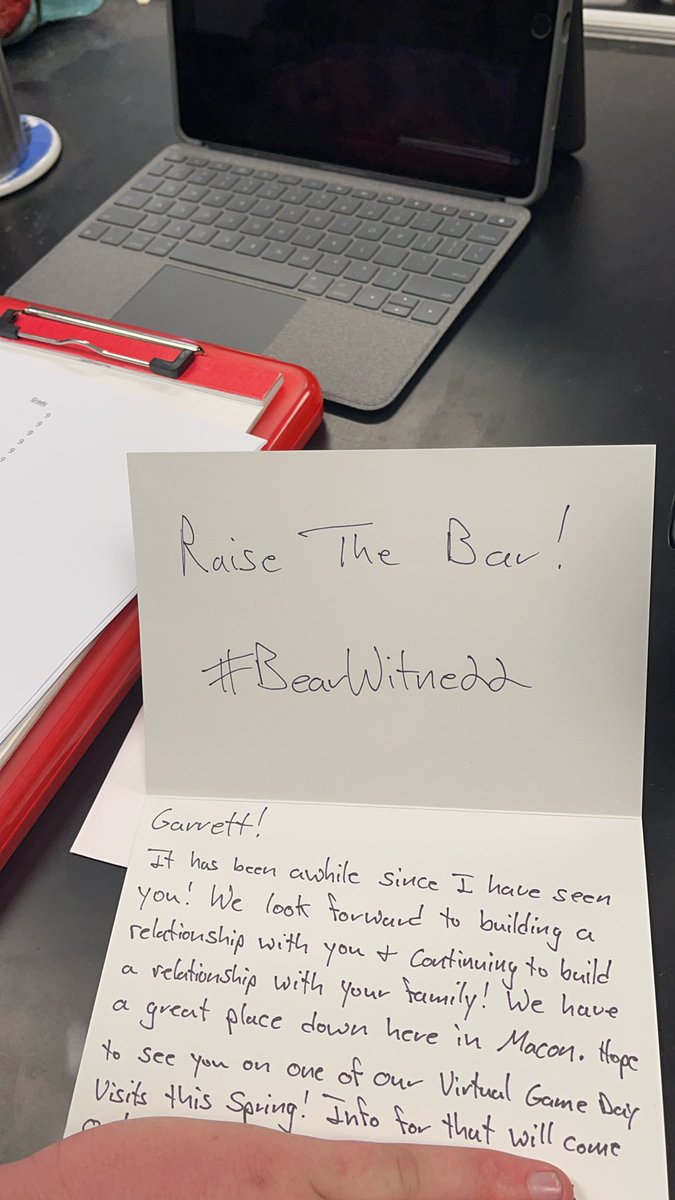 Grade
9
9
9
9
9
Raise The Bar!
#BearWitness
Garrett!
It has been awhile since I have seen
you! We look forward to building a
relationship with you + Continuing to build
a relationship with your family! We have
a great place down here in Macon. Hope
to see you on one of our Virtual Game Day
Visits this Spring! Info for that will come